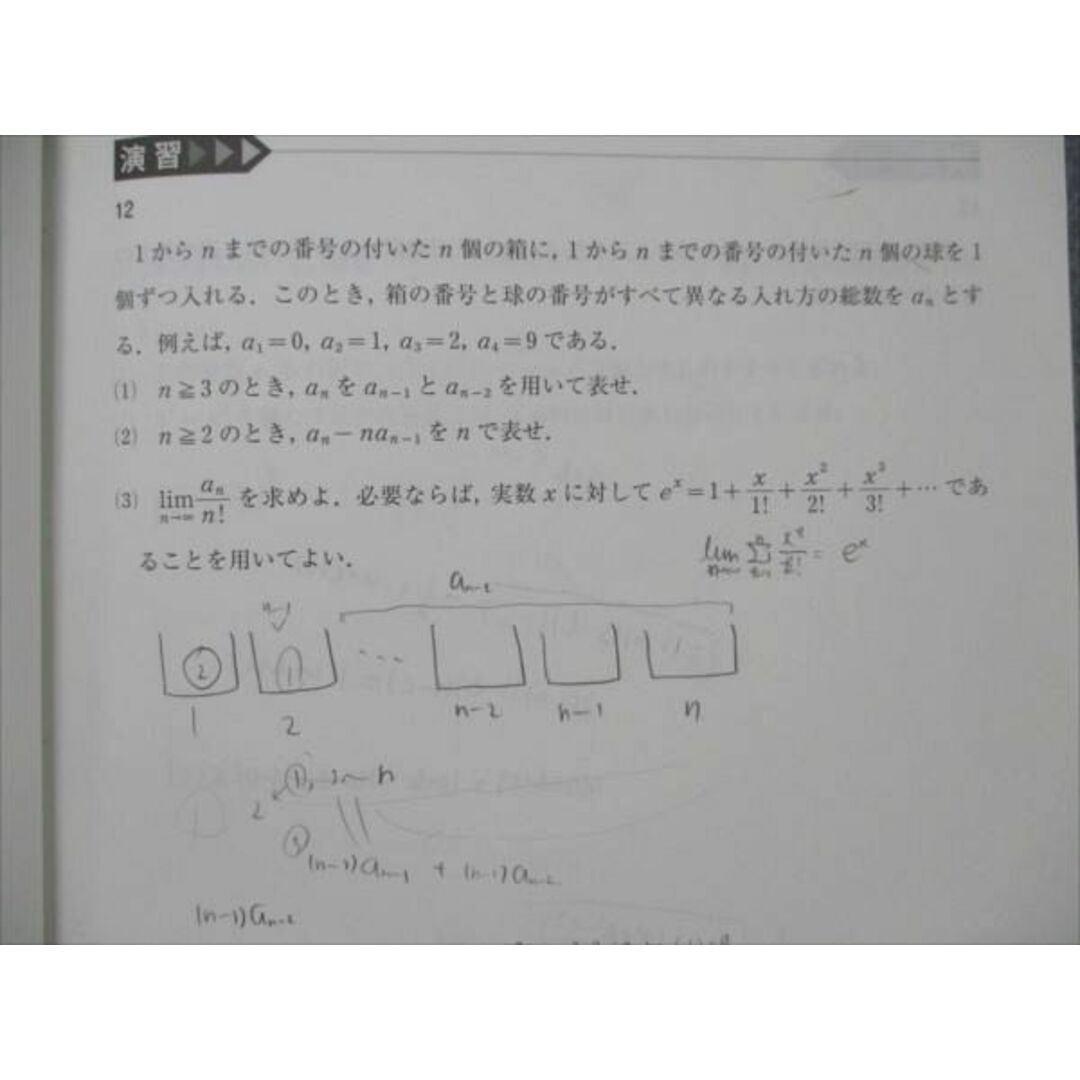 演習
12
1からnまでの番号の付いたn個の箱に,1からnまでの番号の付いたn個の球を1
個ずつ入れる.このとき,箱の番号と球の番号がすべて異なる入れ方の総数をaₙとす
る.例えば,a₁=0,a₂=1,a₃=2,a₄=9である.
(1) n≧3のとき,aₙをaₙ₋₁とaₙ₋₂を用いて表せ.
(2) n≧2のとき,aₙ-naₙ₋₁をnで表せ.
(3) lim n→∞ aₙ/n! を求めよ.必要ならば,実数xに対してeˣ=1+x/1!+x²/2!+x³/3!+…であ
ることを用いてよい.
= eˣ
aₙ₋₂
n-1
2 1 …
1 2 n-2 n-1 n
①, 2~n
2
+ (n-1)aₙ₋₂
(n-1)aₙ₋₂